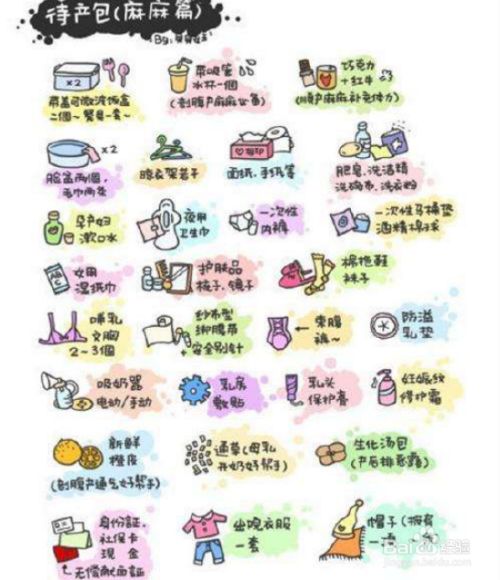 待产包(麻麻篇)
By:
×2
带盖可微波饭盒
二个~餐具一套~
带吸管
水杯一个
(剖腹产麻麻必备)
巧克力
+红牛
(顺产麻麻补充体力)
×2
脸盆两个,
毛巾两条
晾衣架若干
面纸,手纸等
肥皂,洗洁精
洗碗布,洗衣粉
孕产妇
漱口水
夜用
卫生巾
一次性
内裤
一次性马桶垫
酒精棉球
女用
湿纸巾
护肤品
梳子,镜子
棉拖鞋
袜子
哺乳
文胸
2~3個
纱布型
绑腹带
+安全别针
束腹
裤~
防溢
乳垫
吸奶器
电动/手动
乳房
敷贴
乳头
保护膏
妊娠纹
修护霜
新鲜
橙皮
(剖腹产通气好帮手)
通草(母乳
开奶好帮手)
生化汤包
(产后排恶露)
身份証,
社保卡
现金
无偿献血証
出院衣服
一套
帽子(披肩
一
Bai
经验
jingyan.baidu.com